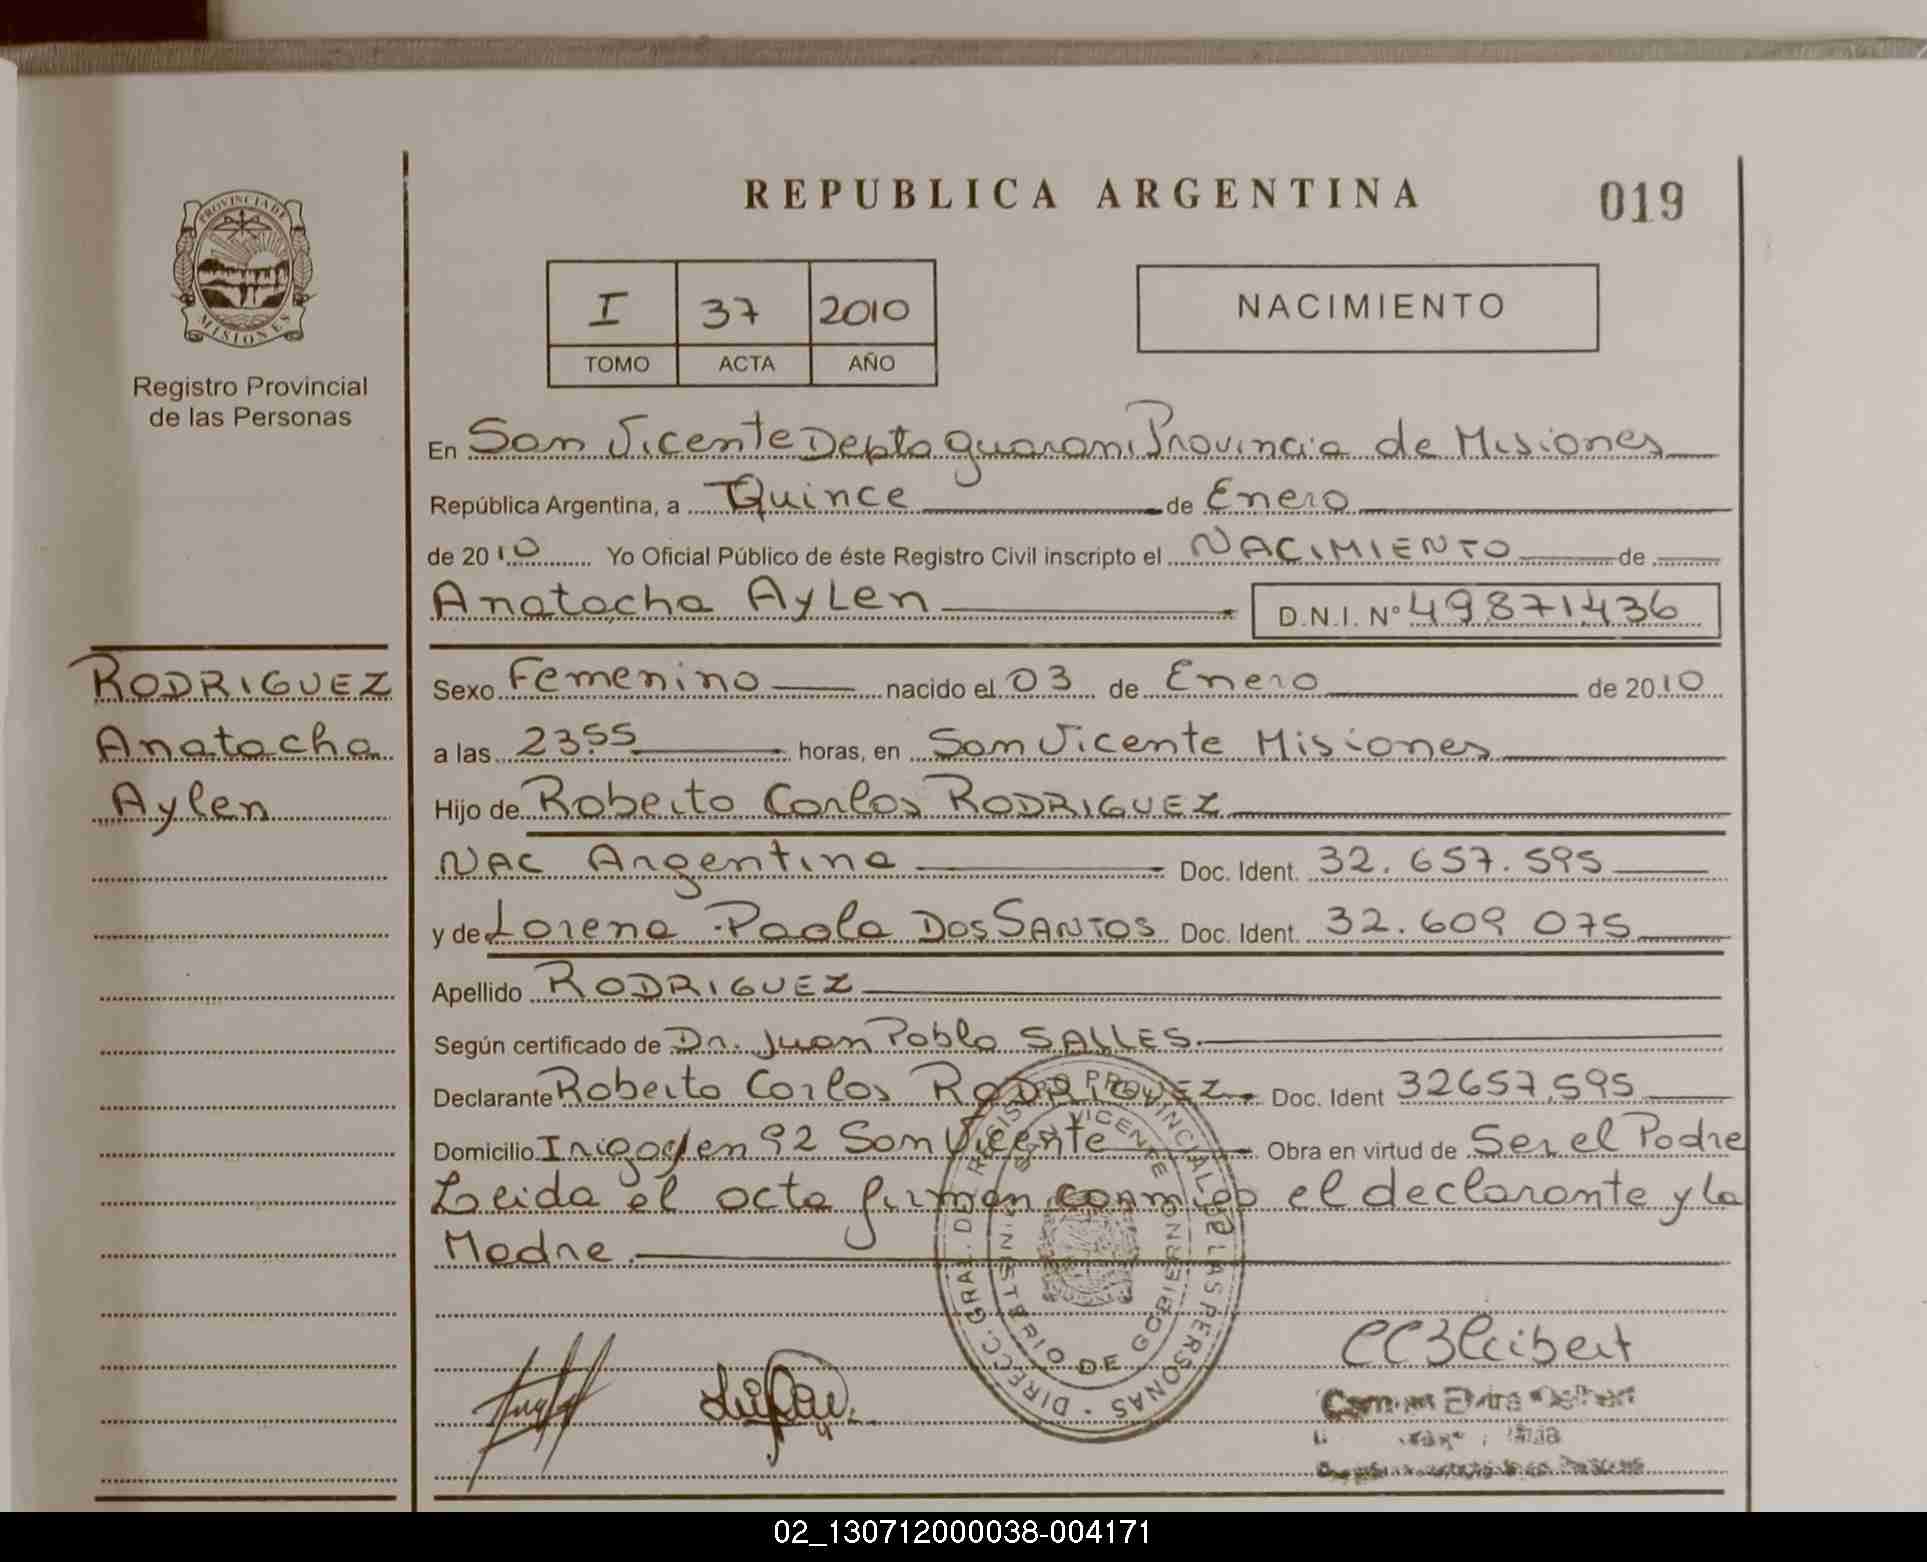 REPUBLICA ARGENTINA
019
PROVINCIA DE
MISIONES
Registro Provincial
de las Personas
I 37 2010
TOMO ACTA AÑO
NACIMIENTO
En San Vicente Depto Guarani Provincia de Misiones
República Argentina, a Quince de Enero
de 2010 Yo Oficial Público de éste Registro Civil inscripto el NACIMIENTO de
Anatacha Aylen D.N.I. Nº 49.871.436
RODRIGUEZ
Anatacha
Aylen
Sexo Femenino nacido el 03 de Enero de 2010
a las 23.55 horas, en San Vicente Misiones
Hijo de Roberto Carlos RODRIGUEZ
NAC Argentina Doc. Ident. 32.657.595
y de Lorena Paola DOS SANTOS Doc. Ident. 32.609 075
Apellido RODRIGUEZ
Según certificado de Dr. Juan Pablo SALLES.
Declarante Roberto Carlos RODRIGUEZ Doc. Ident 32657.595
Domicilio Irigoyen 92 San Vicente Obra en virtud de Ser el Padre
Leida el acta firman conmigo el declarante y la
Madre.
DIRECC. GRAL. DE REGISTRO PROVINCIAL DE LAS PERSONAS
SAN VICENTE
MINISTERIO DE GOBIERNO
02_130712000038-004171